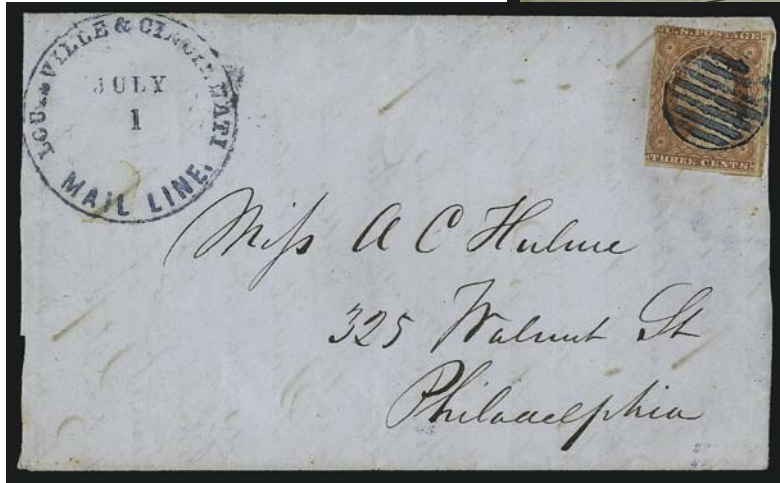 LOUISVILLE & CINCINNATI
JULY
1
MAIL LINE.
U.S. POSTAGE
THREE CENTS
Miss A C Hulme
325 Walnut St
Philadelphia